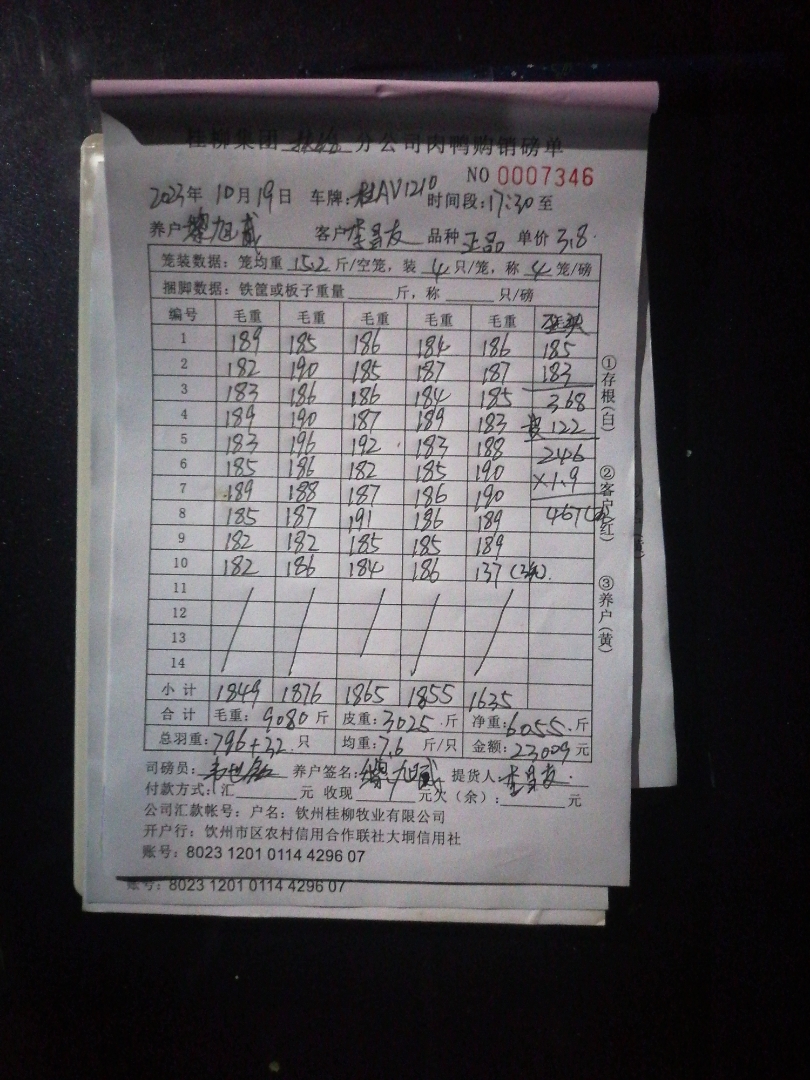 桂柳集团 分公司肉鸭购销磅单
NO 0007346
2023年 10月19日 车牌:桂AV1210 时间段:17:30至
养户 黎旭威 客户 李昌友 品种 正品 单价 3.8
笼装数据:笼均重 15.2 斤/空笼,装 4 只/笼,称 4 笼/磅
捆脚数据:铁筐或板子重量 斤,称 只/磅
编号 毛重 毛重 毛重 毛重 毛重
1 189 185 186 184 186 185
2 182 190 185 187 187 183
3 183 186 186 184 185 368
4 189 190 187 189 183 122
5 183 196 192 183 188 246
6 185 186 182 185 190 ×1.9
7 189 188 187 186 190 467
8 185 187 191 186 189
9 182 182 185 185 189
10 182 186 184 186 137
11
12
13
14
小计 1849 1876 1865 1855 1635
合计 毛重:9080斤 皮重:3025斤 净重:6055斤
总羽重:796+32只 均重:7.6斤/只 金额:23009元
司磅员: 养户签名:黎旭威 提货人:李昌友
付款方式:汇 元 收现 元欠(余): 元
公司汇款帐号:户名:钦州桂柳牧业有限公司
开户行:钦州市区农村信用合作联社大垌信用社
账号:8023 1201 0114 4296 07
账号:8023 1201 0114 4296 07
①存根(白)
②客户(红)
③养户(黄)